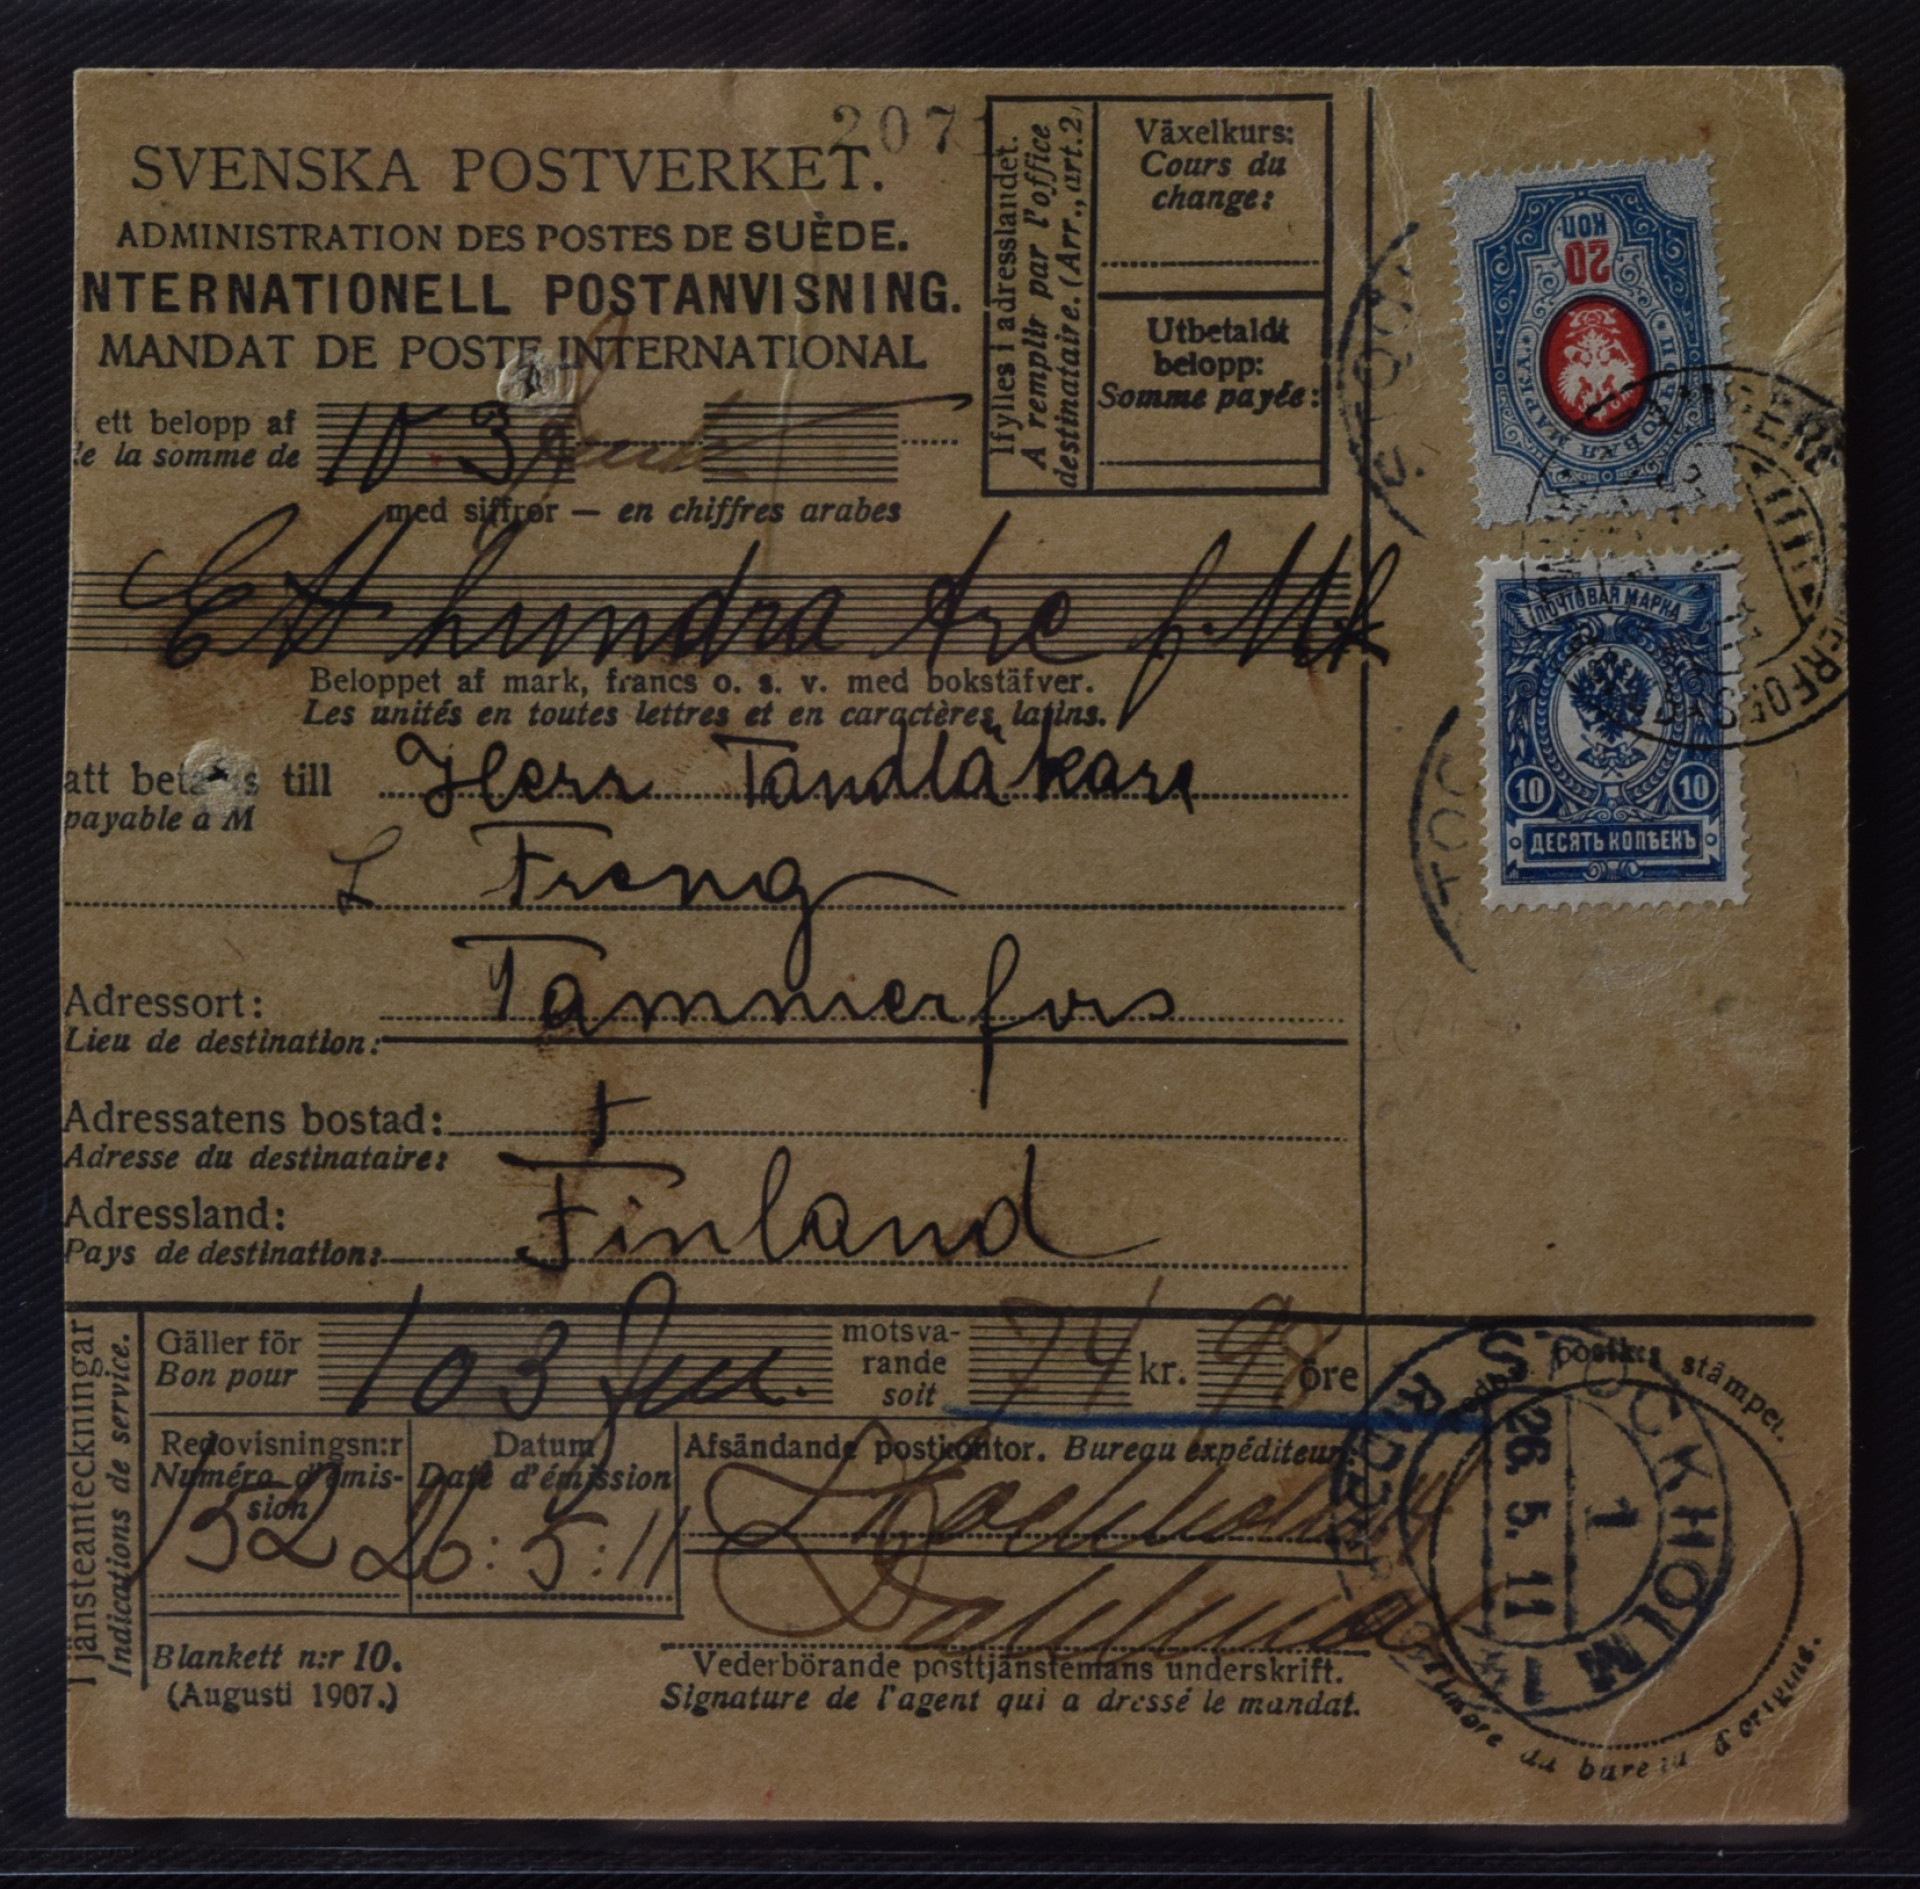 2071
SVENSKA POSTVERKET.
ADMINISTRATION DES POSTES DE SUÈDE.
NTERNATIONELL POSTANVISNING.
MANDAT DE POSTE INTERNATIONAL
ett belopp af 103
de la somme de
med siffror — en chiffres arabes
Ett hundra tre f. Mk
Beloppet af mark, francs o. s. v. med bokstäfver.
Les unités en toutes lettres et en caractères latins.
att betalas till Herr Tandläkare
payable à M
L Freng
Adressort: Tammerfors
Lieu de destination:
Adressatens bostad:
Adresse du destinataire:
Adressland: Finland
Pays de destination:
Ifylles i adresslandet.
A remplir par l'office
destinataire. (Arr., art. 2)
Växelkurs:
Cours du
change:
Utbetaldt
belopp:
Somme payée:
20
КОП.
ПОЧТОВАЯ МАРКА
ПОЧТОВАЯ МАРКА
10 10
ДЕСЯТЬ КОПѢЕКЪ
I jänsteanteckningar
Indications de service.
Gäller för 103
Bon pour
motsva-
rande
soit
74 kr. 98 öre
Redovisningsn:r
Numéro d'émis-
sion
152
Datum
Date d'émission
26:5:11
Afsändande postkontor. Bureau expéditeur.
Stockholm
Vederbörande posttjänstemans underskrift.
Signature de l'agent qui a dressé le mandat.
Blankett n:r 10.
(Augusti 1907.)
postk:s stämpel.
STOCKHOLM 1
26. 5. 11
Timbre du bureau d'origine.